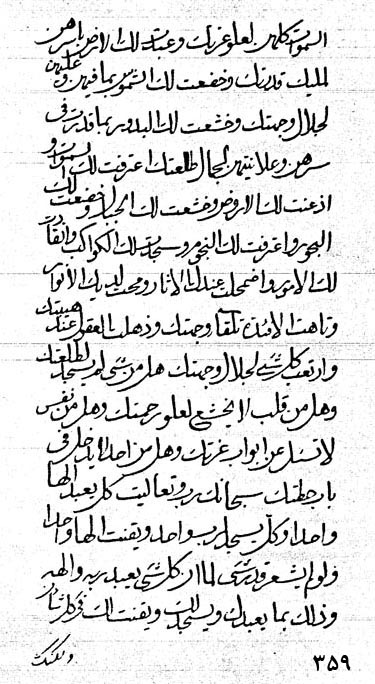 السموات كلهن لعلو عزتك وعبدت لك الارض باسرهن
لمليك قدرتك وخضعت لك الشموس بما فيهن وعليهن
لجلال وجهتك وخشعت لك البدور بما قدرت في
سرهن وعلانيتهن لجمال طلعتك اعترفت لك السموات و
اذعنت لك الارض وخشعت لك الجبال وخضعت لك
البحور واعترفت لك النجوم وسجدت لك الكواكب وانقاد
لك الامور واضمحلت عندك الاثار ومحت لديك الانوار
وتاهت الافئدة تلقاء وجهتك وذهلت العقول عند هيبتك
وارتعب كل شئ لجلال وجهتك هل من شئ لم يسجد لطلعتك
وهل من قلب لا يخشع لعلو رحمتك وهل من نفس
لا تسئل عن ابواب عزتك وهل من احد لا يدخل في
باب حطتك سبحانك رب وتعاليت كل يعبد الها
واحدا وكل يسجد لرب واحد ويقنت الها واحدا
ولو لم يشعر قدر شئ لما ان كل شئ يعبد ربه والهه
وذلك بما يعبدك ويسجد لك ويقنت لك في كل شأن
ولكنك
٣٥٩